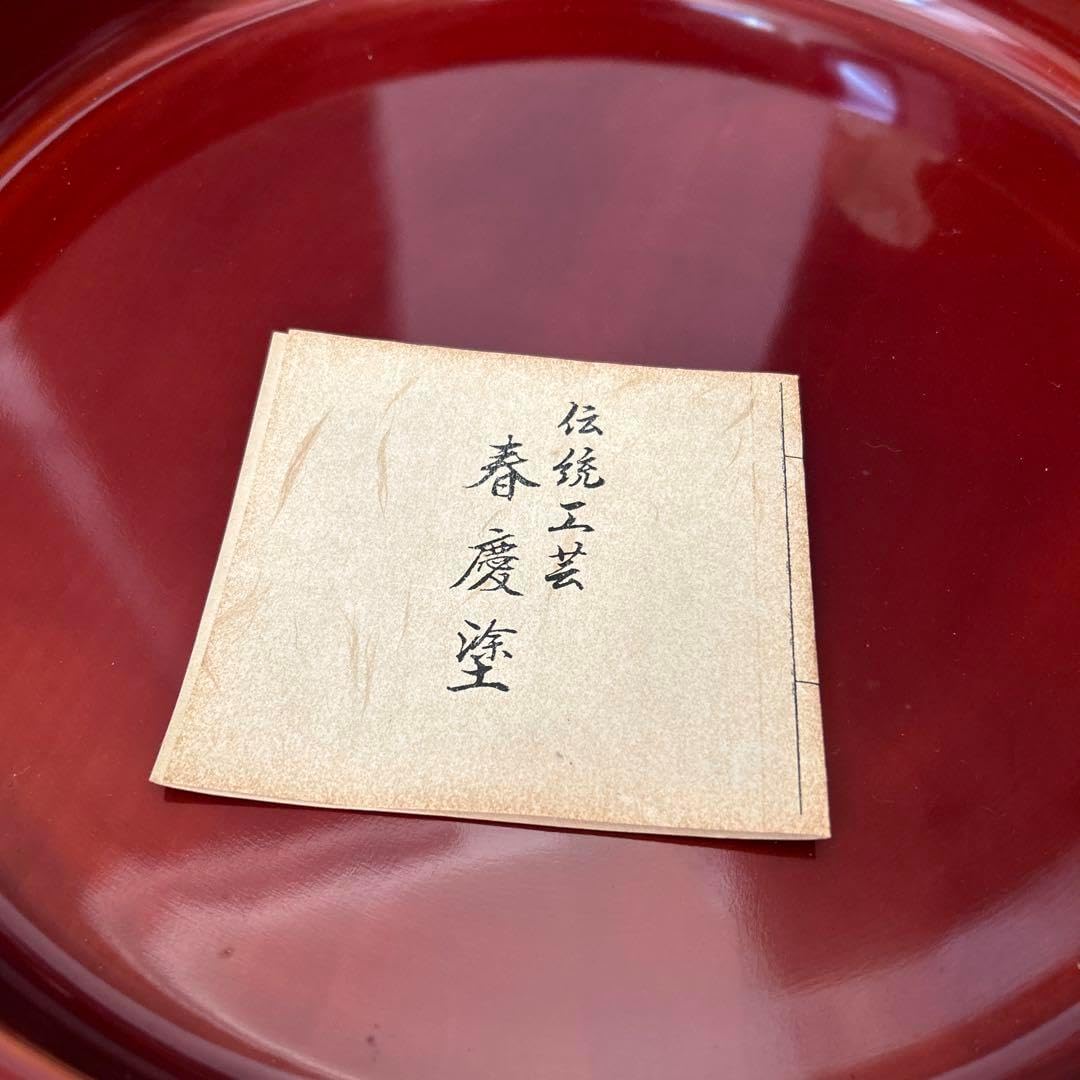 伝统工芸
春慶塗